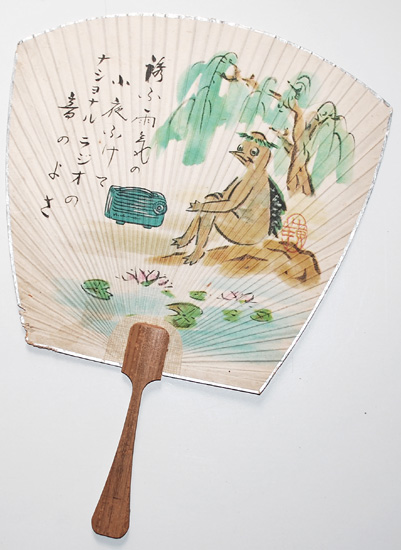 誘ふ雨気の
小夜ふけて
ナショナルラジオの
音のよさ